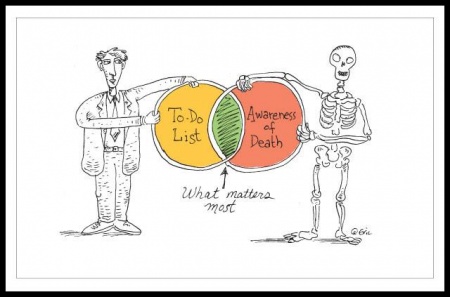 To-Do
List
Awareness
of
Death
What matters
most